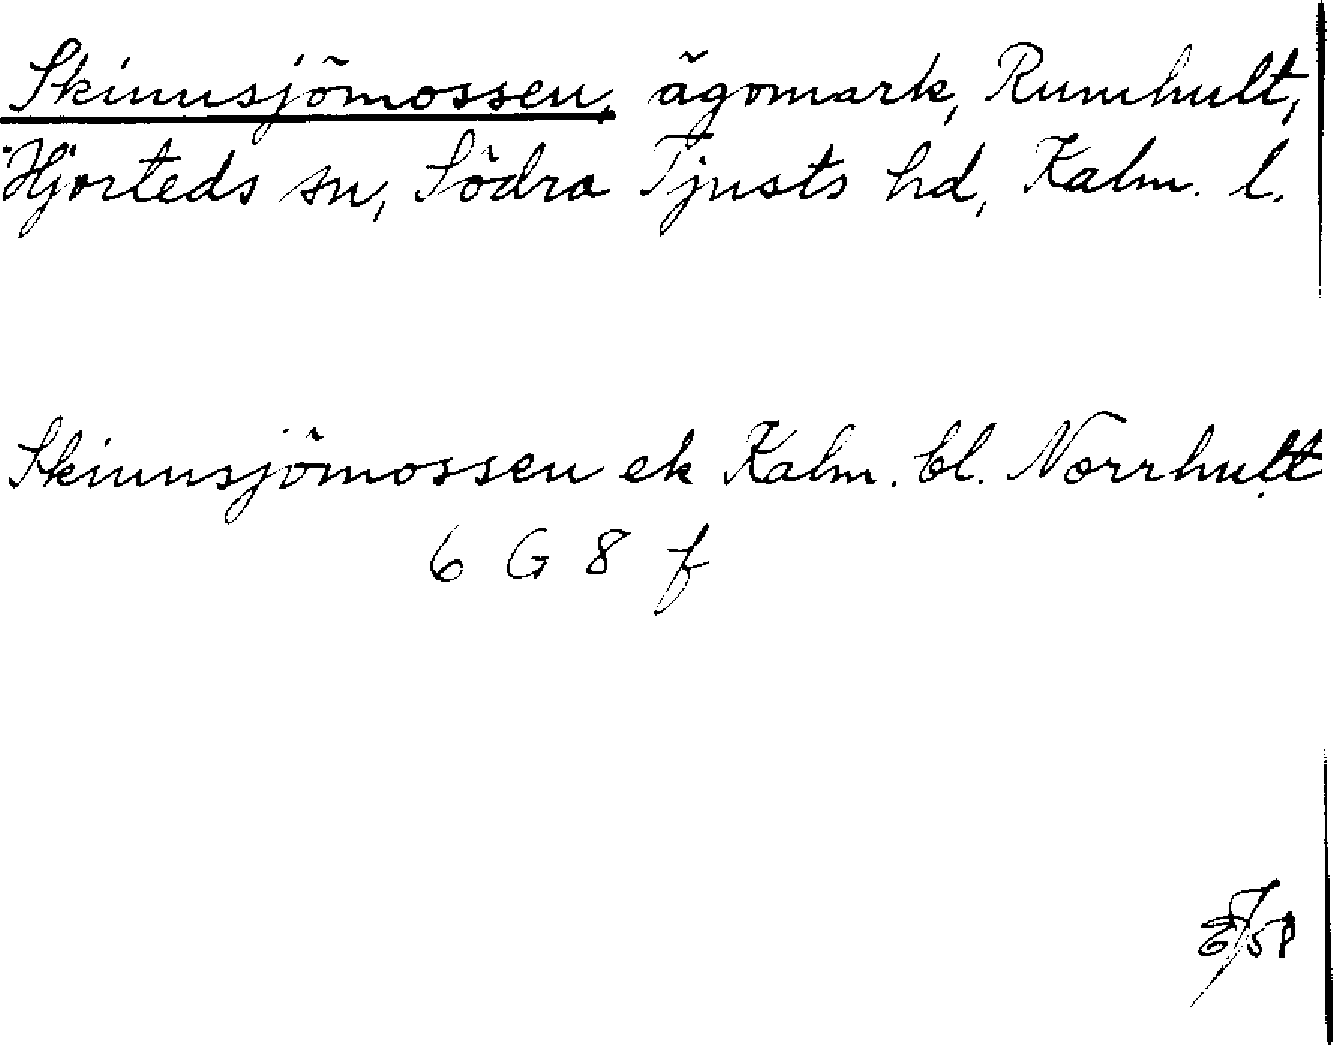 Skinnsjömossen, ägomark, Rumhult,
Hjorteds sn, Södra Tjusts hd, Kalm. l.
Skinnsjömossen ek Kalm. bl. Norrhult
6 G 8 f